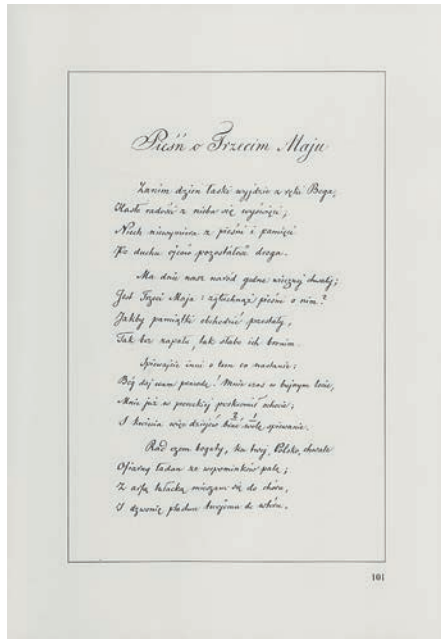 Pieśń o Trzecim Maju
Zanim dzień łaski wyjdzie z ręki Boga,
Hasło radości z nieba się
Niech z pieśni i pamięci
Po duchu ojców pozostałość droga.
Ma dnie nasz naród godne wiecznej chwały;
Jest Trzeci Maja: pieśni o nim?
Jakby pamiątki obchodzić przestały,
Tak bez zapału, tak słabo ich bronim.
Śpiewajcie inni o tem co nastanie:
Bóg daj wam prawdę! Mnie czas w bujnym locie,
Mnie już w ochocie;
I więc dziejów wolę śpiewanie.
Rad czem bogaty, ku twej, Polsko, chwale
Ofiarny ładan ze wspominków palę;
Z arfą tułacką mieszam się do chóru,
I dzwonię do wtóru.
101